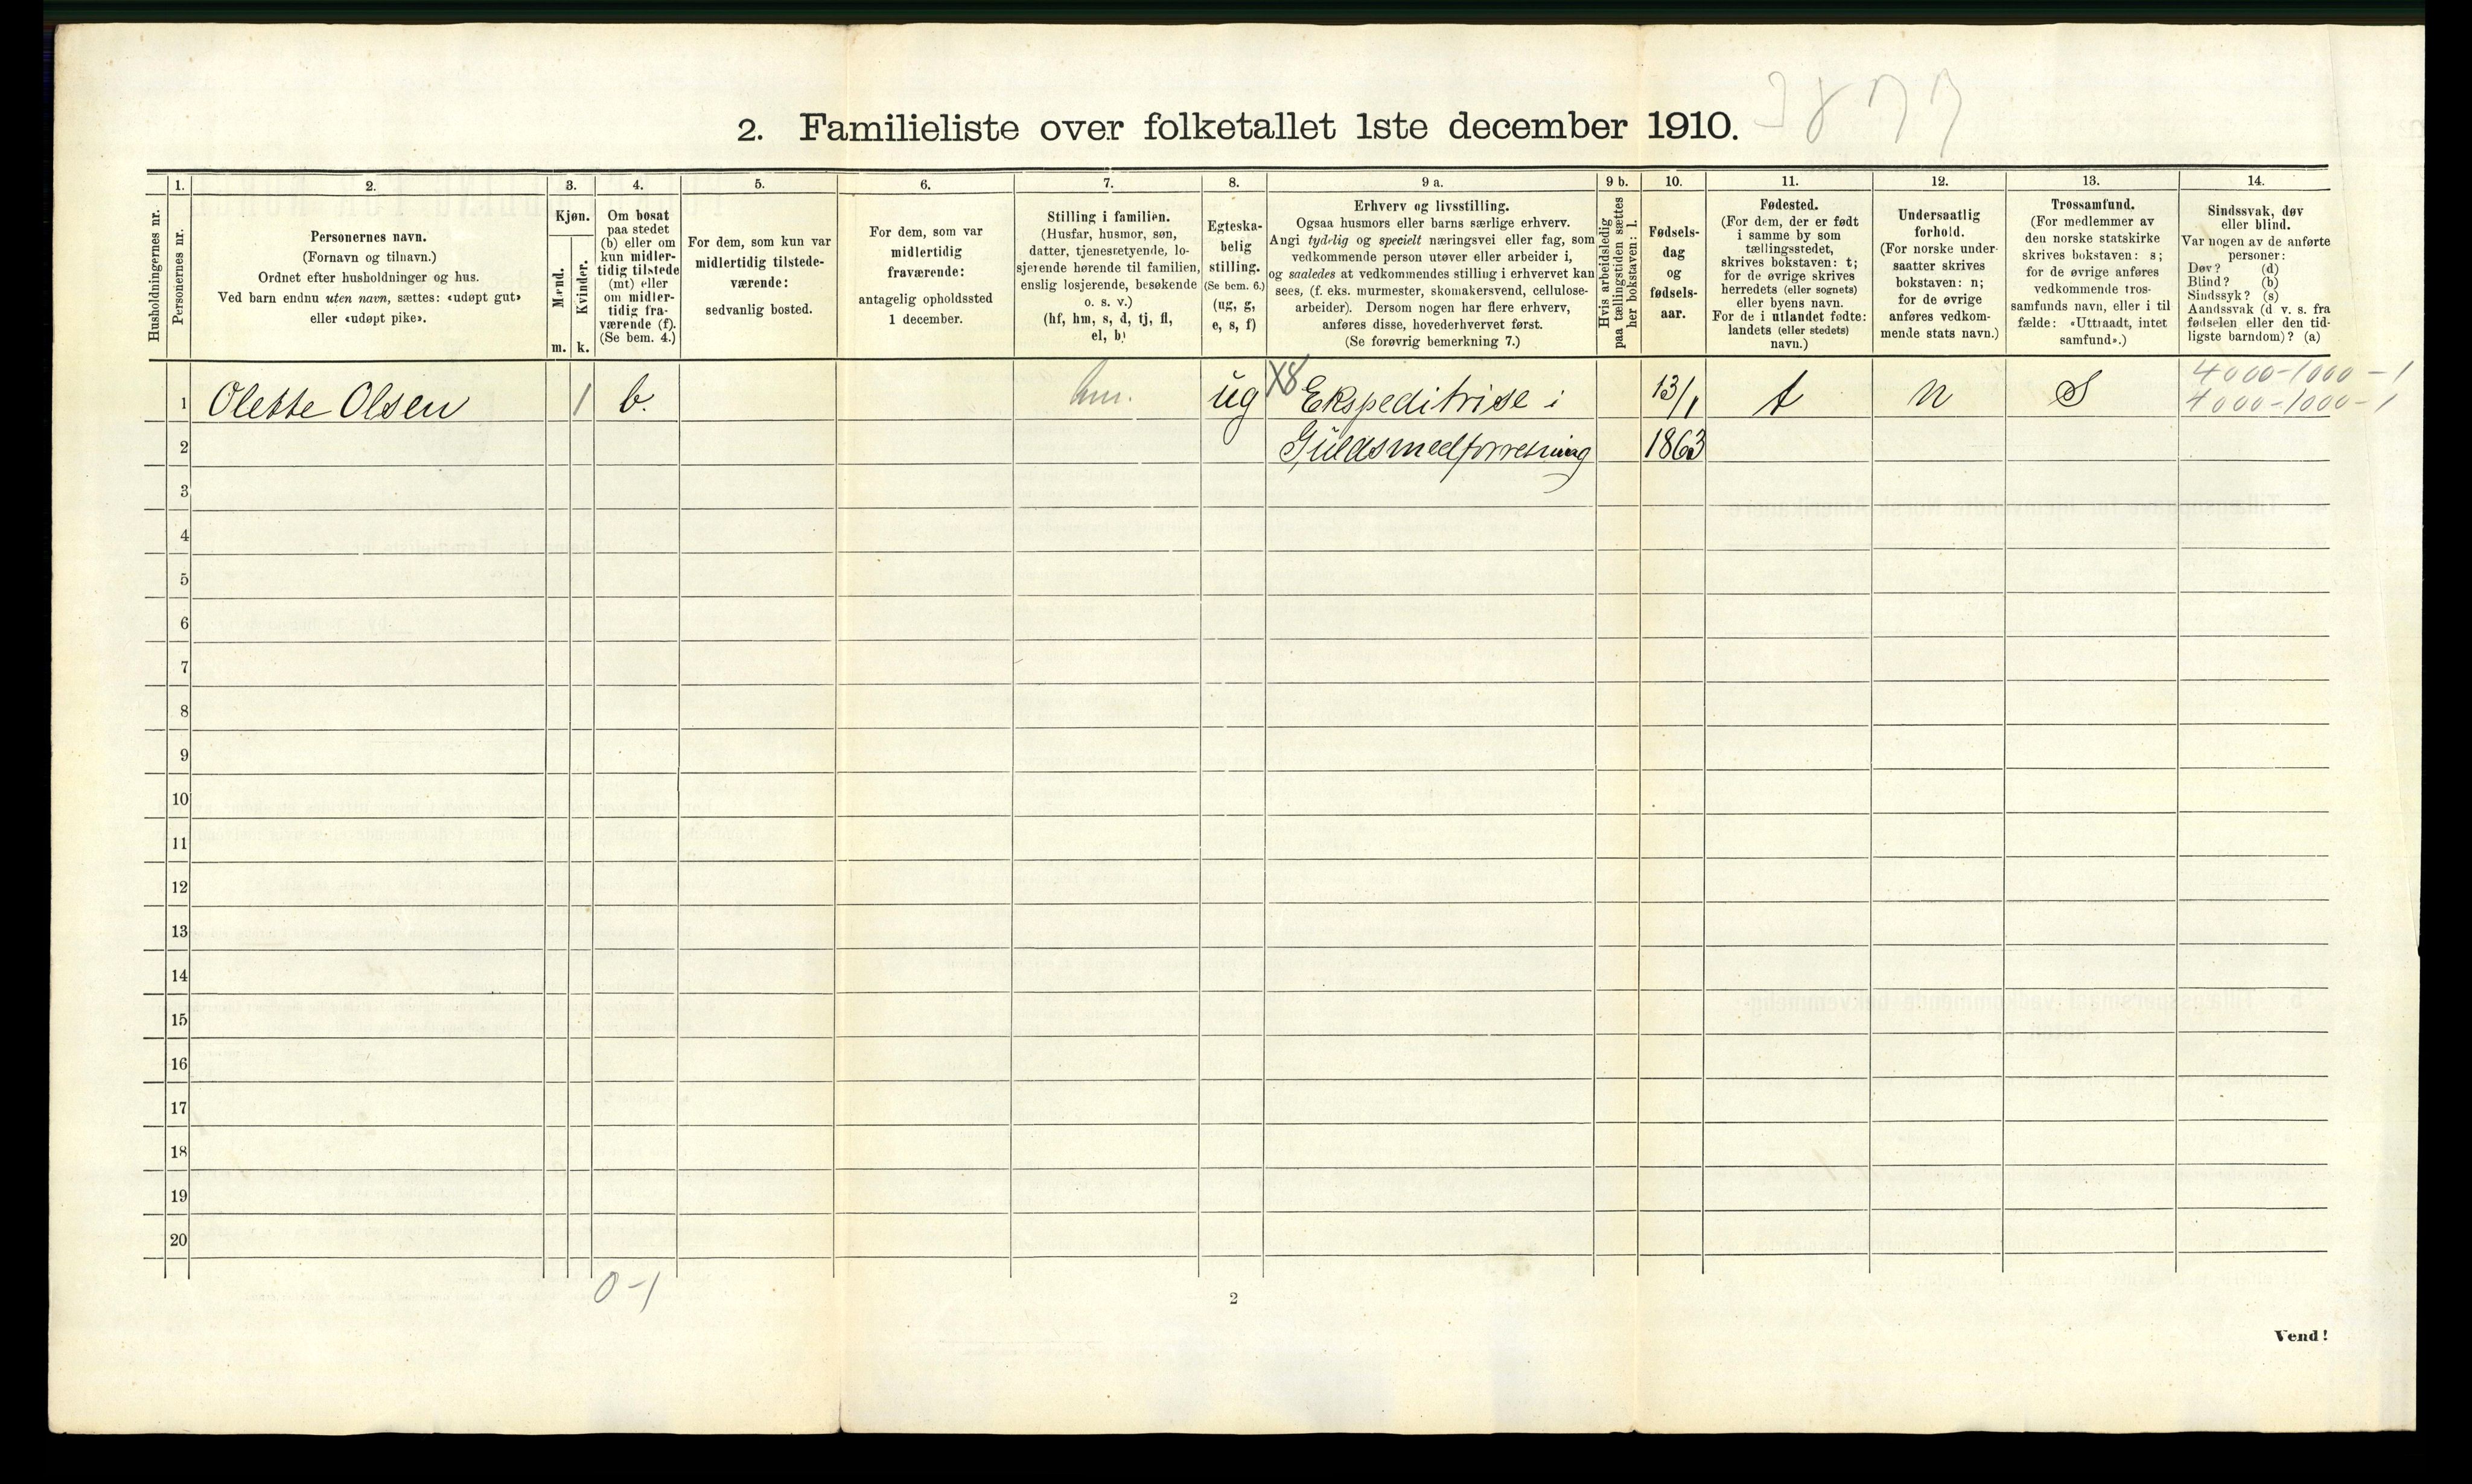 3877
2. Familieliste over folketallet 1ste december 1910.
Husholdningernes nr.
1.
Personernes nr.
2.
Personernes navn.
(Fornavn og tilnavn.)
Ordnet efter husholdninger og hus.
Ved barn endnu uten navn, sættes: «udøpt gut»
eller «udøpt pike».
3.
Kjøn.
Mænd.
m.
Kvinder.
k.
4.
Om bosat
paa stedet
(b) eller om
kun midler-
tidig tilstede
(mt) eller
om midler-
tidig fra-
værende (f).
(Se bem. 4.)
5.
For dem, som kun var
midlertidig tilstede-
værende:
sedvanlig bosted.
6.
For dem, som var
midlertidig
fraværende:
antagelig opholdssted
1 december.
7.
Stilling i familien.
(Husfar, husmor, søn,
datter, tjenestetyende, lo-
sjerende hørende til familien,
enslig losjerende, besøkende
o. s. v.)
(hf, hm, s, d, tj, fl,
el, b)
8.
Egteska-
belig
stilling.
(Se bem. 6.)
(ug, g,
e, s, f)
9 a.
Erhverv og livsstilling.
Ogsaa husmors eller barns særlige erhverv.
Angi tydelig og specielt næringsvei eller fag, som
vedkommende person utøver eller arbeider i,
og saaledes at vedkommendes stilling i erhvervet kan
sees, (f. eks. murmester, skomakersvend, cellulose-
arbeider). Dersom nogen har flere erhverv,
anføres disse, hovederhvervet først.
(Se forøvrig bemerkning 7.)
9 b.
Hvis arbeidsledig
paa tællingstiden sættes
her bokstaven: l.
10.
Fødsels-
dag
og
fødsels-
aar.
11.
Fødested.
(For dem, der er født
i samme by som
tællingsstedet,
skrives bokstaven: t;
for de øvrige skrives
herredets (eller sognets)
eller byens navn.
For de i utlandet fødte:
landets (eller stedets)
navn.)
12.
Undersaatlig
forhold.
(For norske under-
saatter skrives
bokstaven: n;
for de øvrige
anføres vedkom-
mende stats navn.)
13.
Trossamfund.
(For medlemmer av
den norske statskirke
skrives bokstaven: s;
for de øvrige anføres
vedkommende tros-
samfunds navn, eller i til
fælde: «Uttraadt, intet
samfund».)
14.
Sindssvak, døv
eller blind.
Var nogen av de anførte
personer:
Døv? (d)
Blind? (b)
Sindssyk? (s)
Aandssvak (d v. s. fra
fødselen eller den tid-
ligste barndom)? (a)
1 Olette Olsen 1 b. hm. ug X8 Ekspeditrise i 13/1 t n S 4000-1000-1
4000-1000-1
2 Guldsmedforretning 1863
3
4
5
6
7
8
9
10
11
12
13
14
15
16
17
18
19
20
0-1
2
Vend!